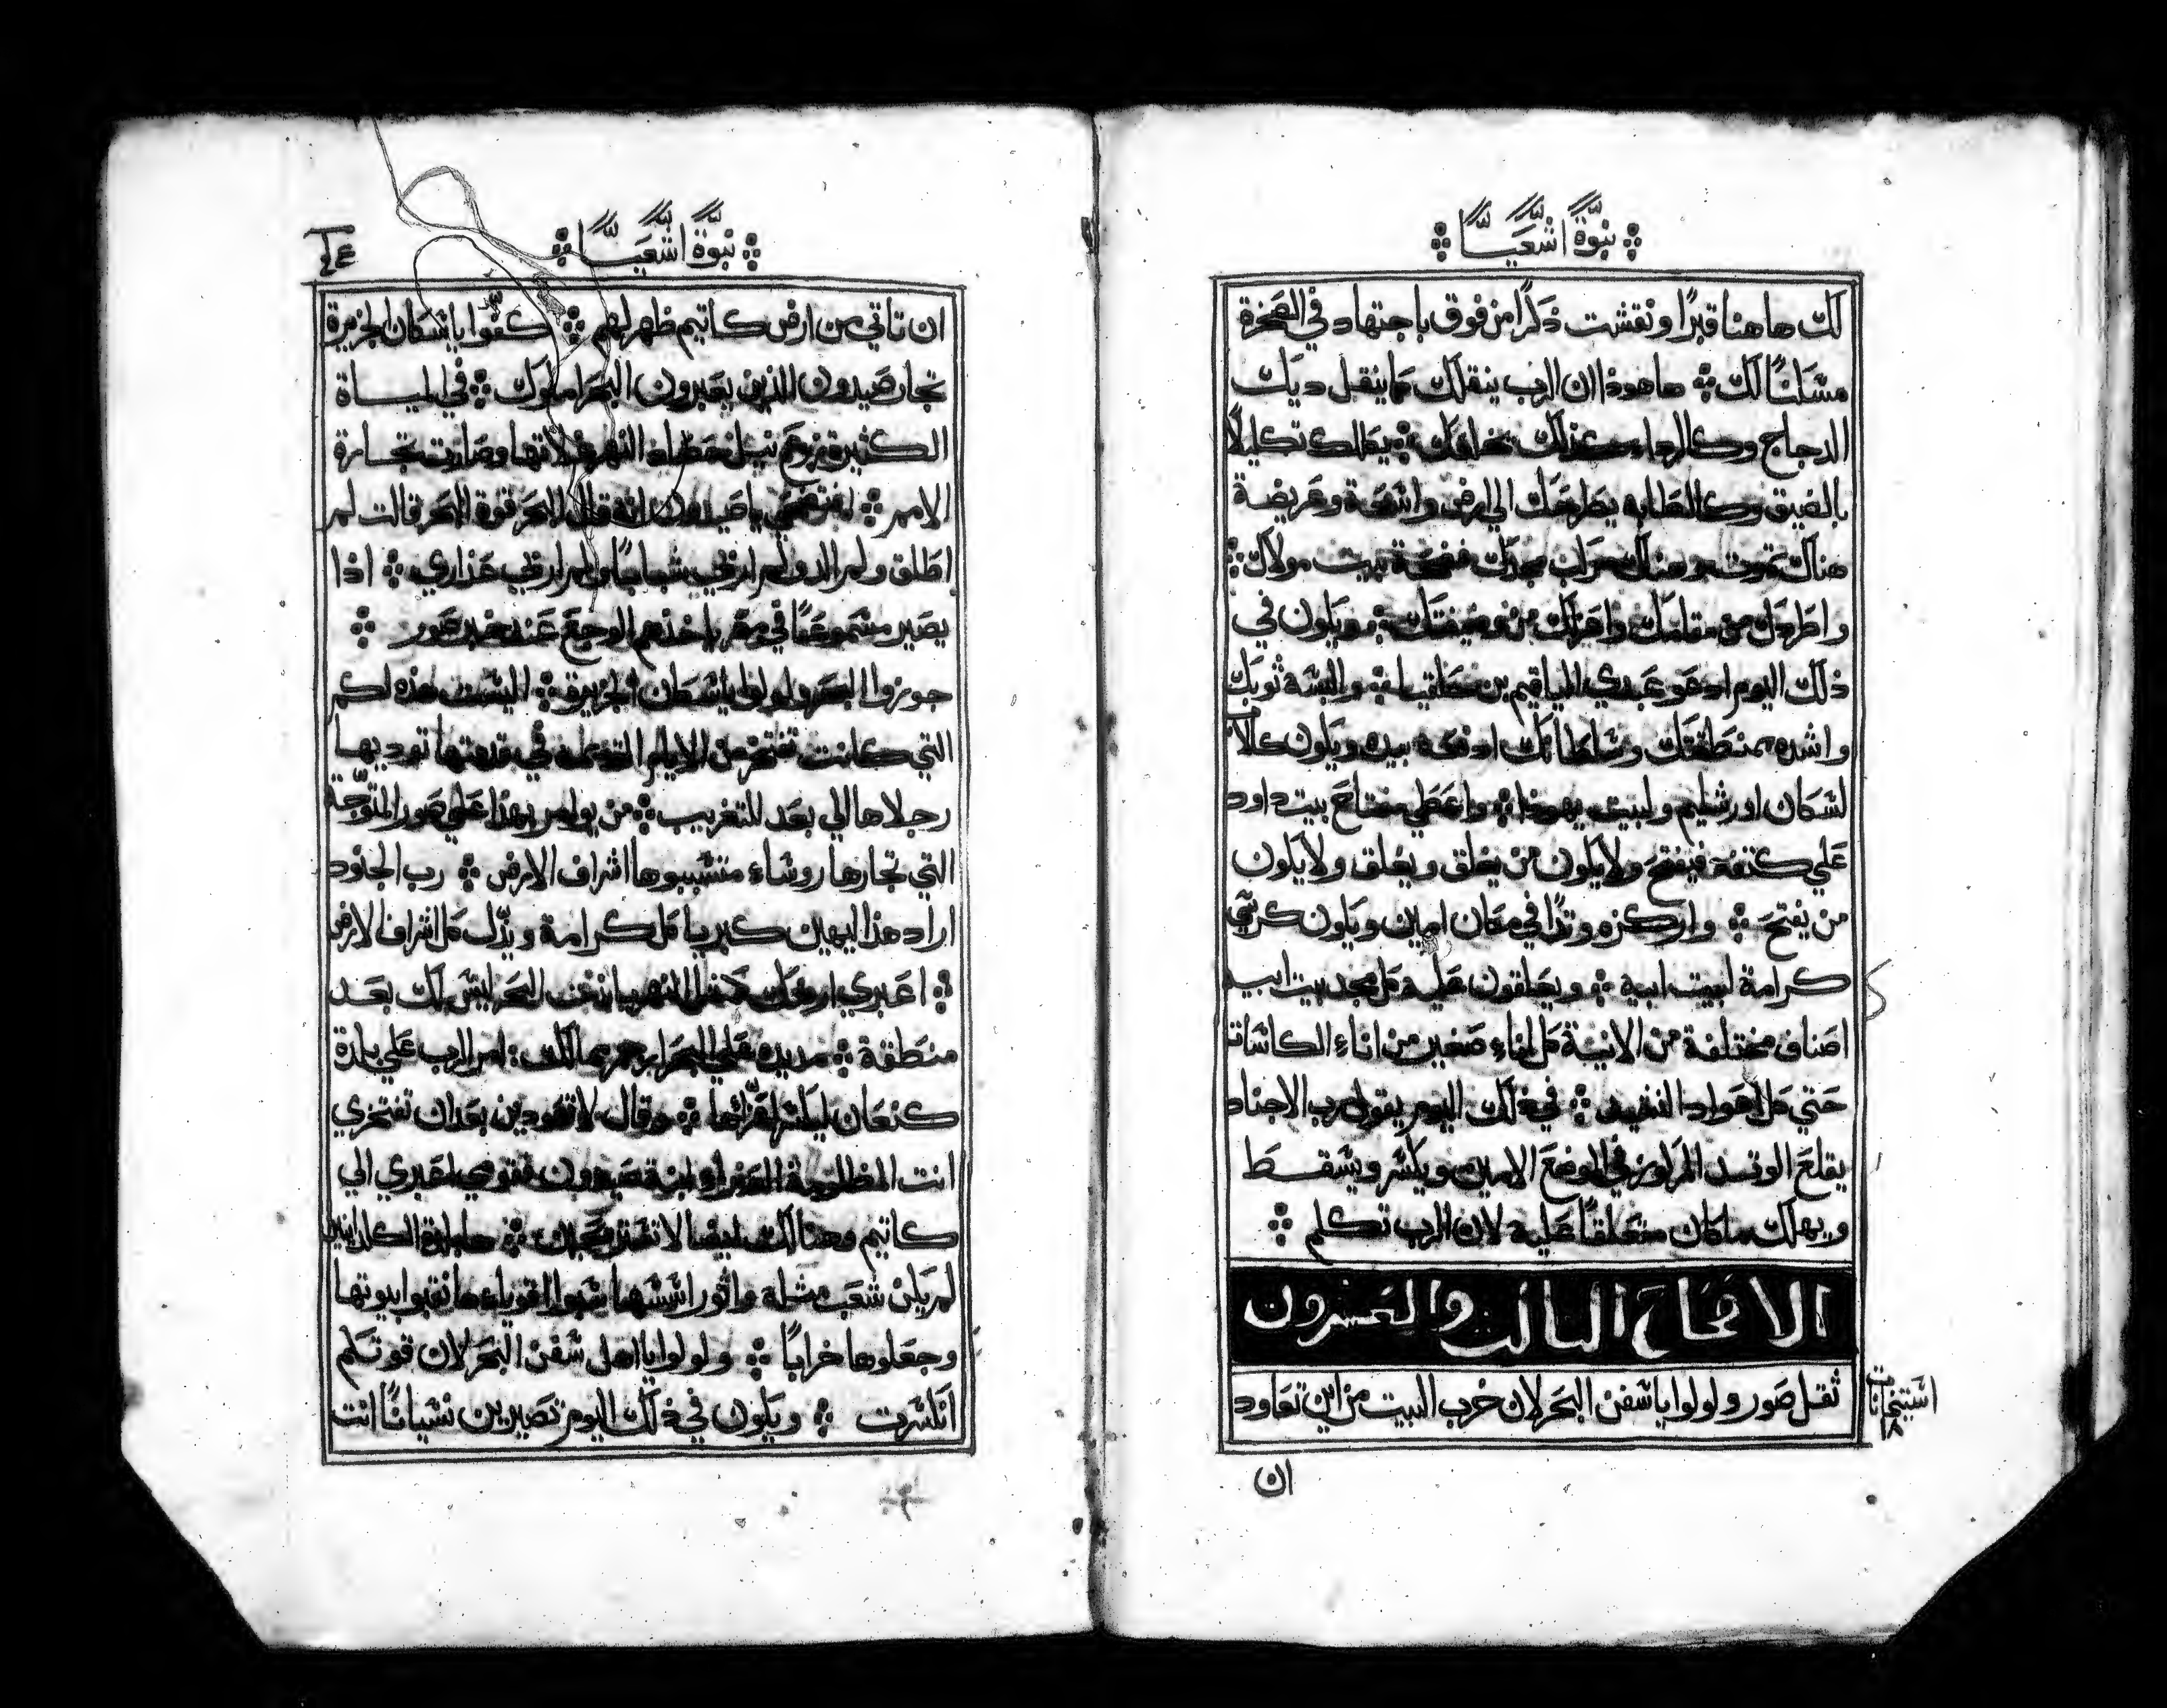 نبوة اشعيا
لك هاهنا قبرًا ونقشت ذكرًا من فوق باجتهاد في الصخرة
مسكنًا لك ها هوذا ان الرب ينقلك كما ينقل ديك
الدجاج وكالرداء كذلك يكللك تكليلًا
بالضيق وكالطابه يطرحك الي ارض واسعة وعريضة
هناك تموت وهناك مركب مجدك فضيحة بيت مولاك
واطردك من مقامك واعزلك من وضيفتك ويكون في
ذلك اليوم ادعو عبدي الياقيم بن حلقيا والبسه ثوبك
واشده بمنطقتك وسلطانك ادفعه بيده ويكون كالاب
لسكان اورشليم ولبيت يهوذا واعطي مفتاح بيت داود
علي كتفه فيفتح ولا يكون من يغلق ويغلق ولا يكون
من يفتح واركزه وتدًا في مكان امين ويكون كرسي
كرامة لبيت ابيه ويعلقون عليه كل مجد بيت ابيه
اصناف مختلفة من الانية كل اناء صغير من اناء الكاسات
حتي كل في ذلك اليوم يقول رب الاجناد
يقلع الوتد المركوز في الموضع الامين ويكسر ويسقط
ويهلك ما كان متعلقًا عليه لان الرب تكلم
الاصحاح الثالث والعشرون
ثقل صور ولولوا يا سفن البحر لان خرب البيت من اين تعاود
ان
نبوة اشعيا
ان تاتي من ارض كاتيم ظهر لهم يا سكان الجزيرة
تجار صيدون الذين يعبرون البحر املوك في المياة
الكثيرة زرع نيل حصاد النهر غلاتها وصارت تجارة
الامم يا صيدون انه قال البحر قوة البحر قالت لم
اطلق ولم الد ولم اربي شبابًا ولم اربي عذاري اذا
يصير مسموعًا في مصر ياخذهم الوجع عند خبر صور
جوزوا البحر ولولوا يا سكان الجزيرة اليست هذه لكم
التي كانت تفتخر من الايام القديمة في قدمتها توديها
رجلاها الي بعد للتغريب من يوامر بهذا علي صور المتوجة
التي تجارها روساء متسببوها اشراف الارض رب الجنود
اراد هذا ليهين كبريا كل كرامة ويذل كل اشراف الارض
اعبري ارضك مثل النهر يا بنت البحر ليس لك بعد
منطقة مد يده علي البحر امر الرب علي بلدة
كنعان ليكسر اعزائها وقال لا تعودين بعد ان تفتخري
انت المظلومة العذراء ابنة صيدون قومي اعبري الي
كاتيم وهنالك ايضا لا تستريحين ها بلدة الكلدانيين
لم يكن شعب مثله واثور اسسها سبوا اقوياءها نقبوا بيوتها
وجعلوها خرابًا ولولوا يا اهل سفن البحر لان قوتكم
انكسرت ويكون في ذلك اليوم تصيرين نسيانًا انت